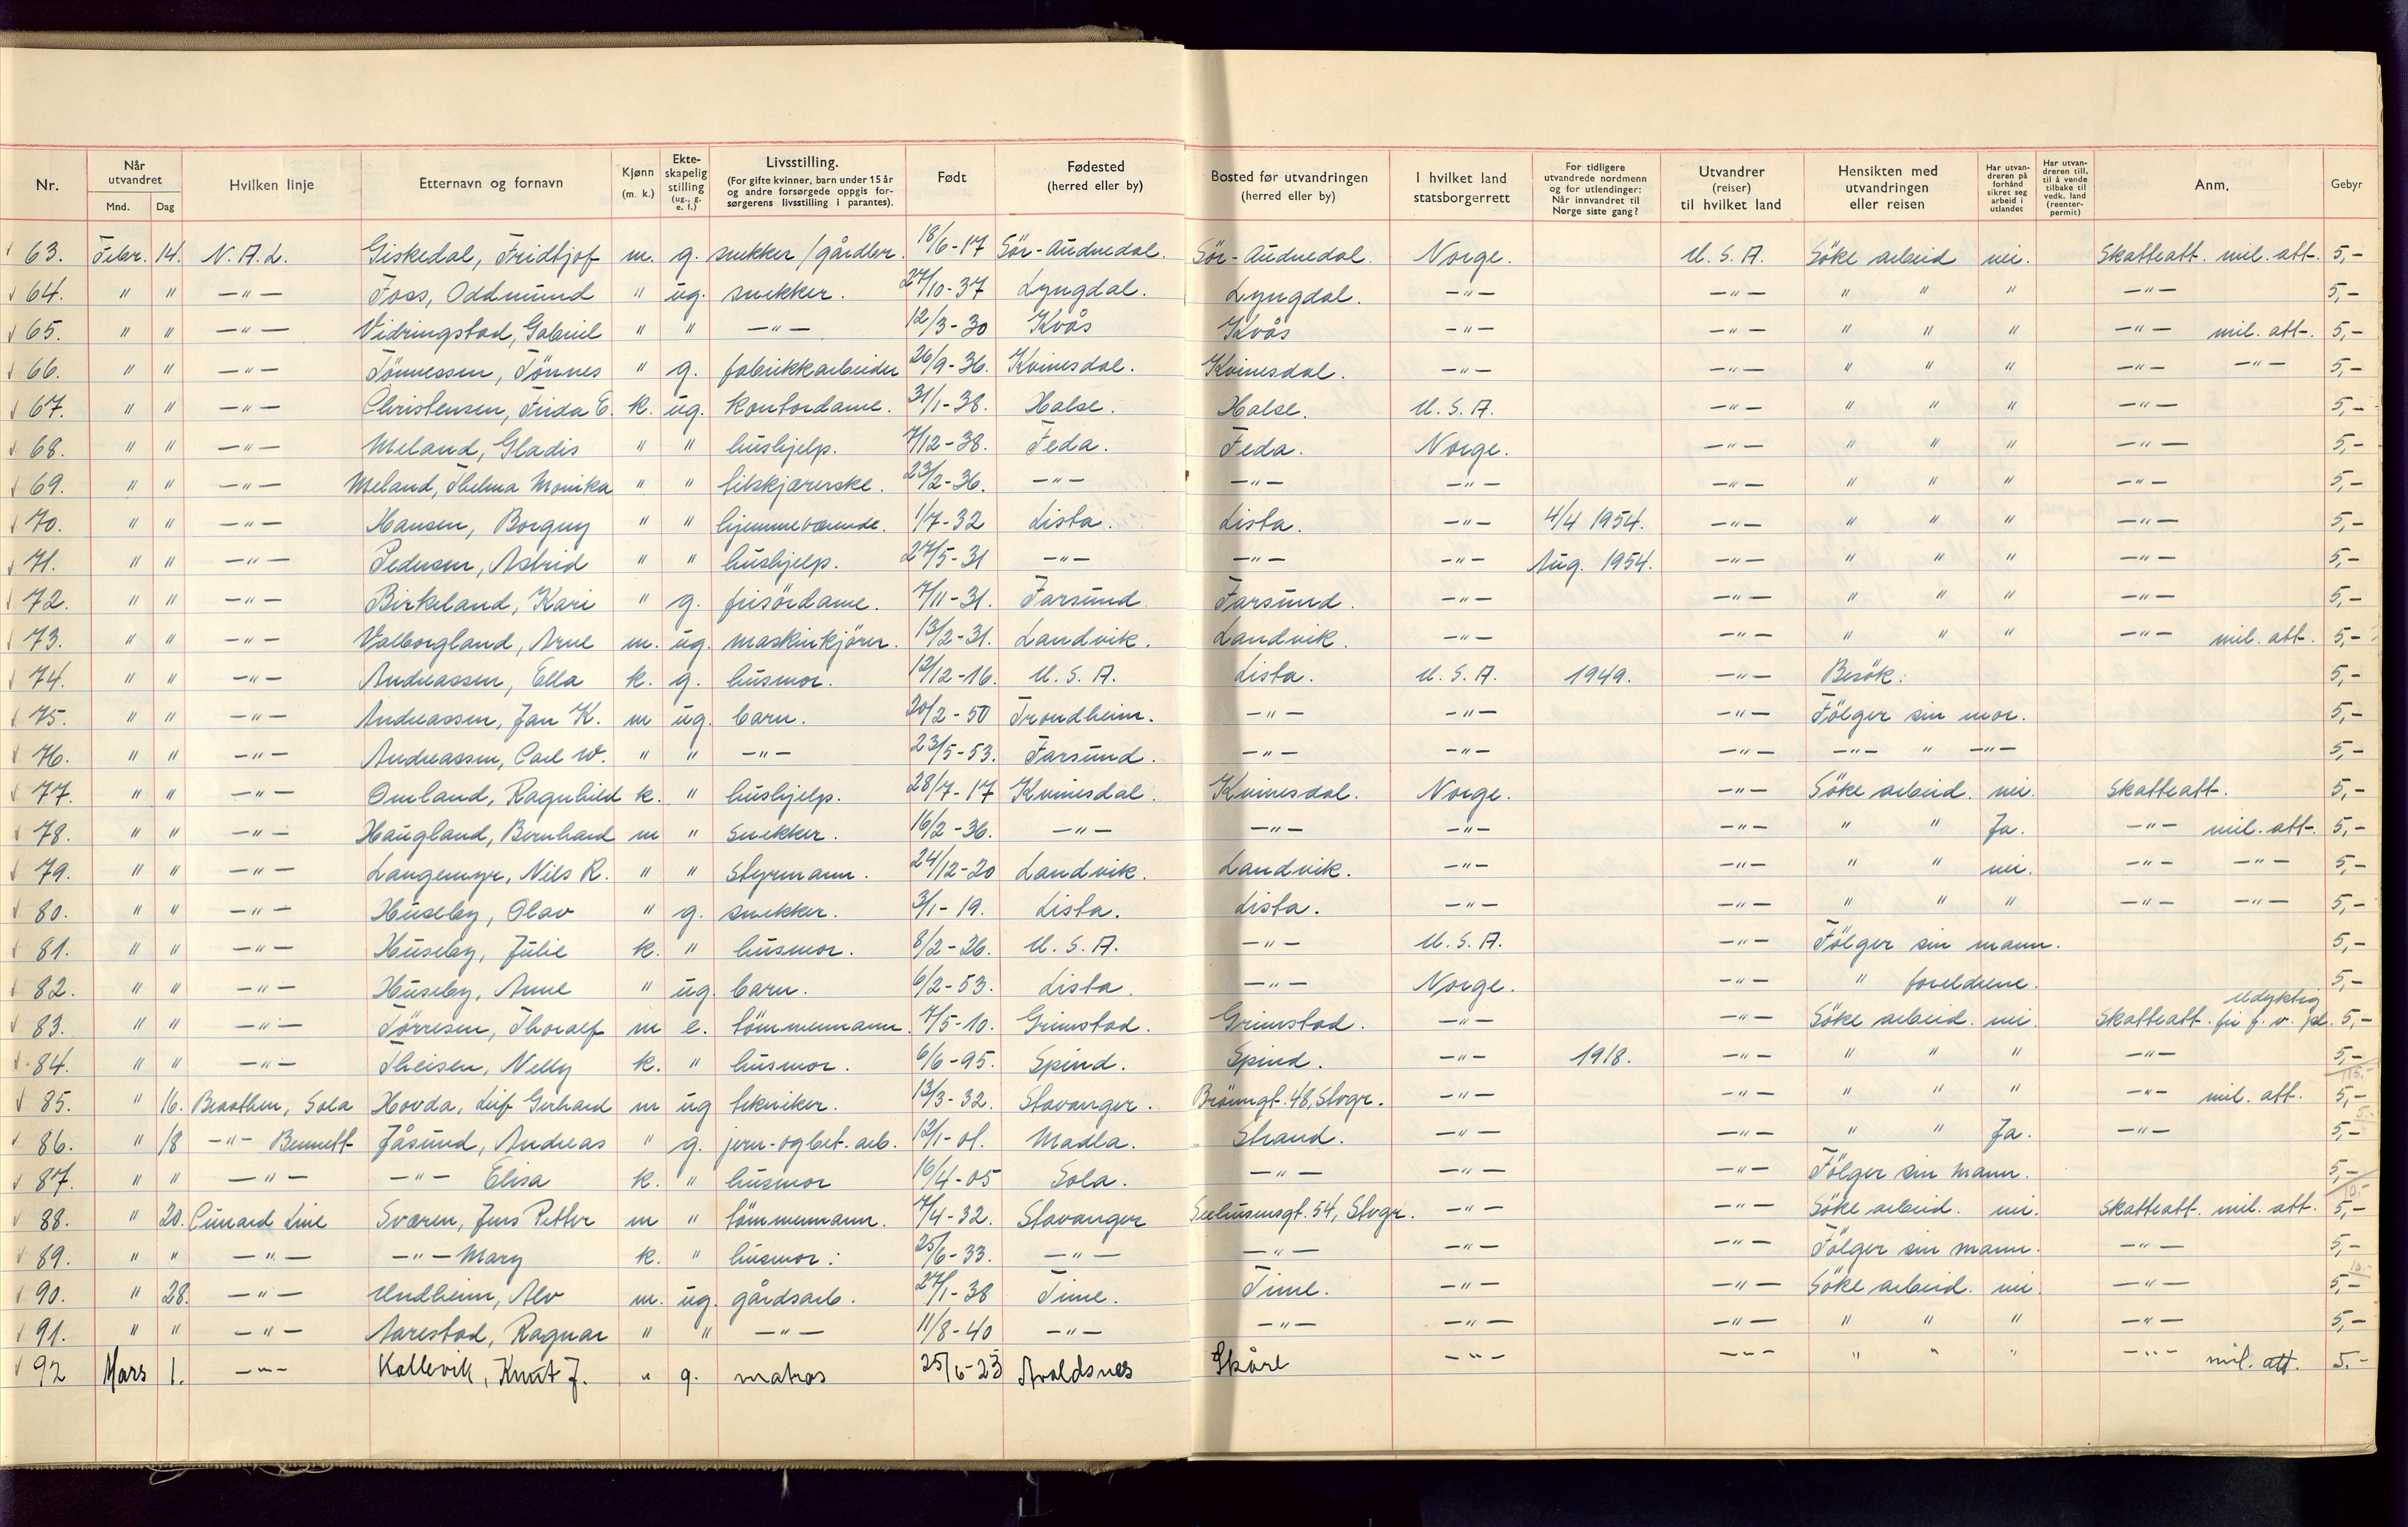 Nr. | Når utvandret Mnd. Dag | Hvilken linje | Etternavn og fornavn | Kjønn (m. k.) | Ekte-skapelig stilling (ug., g. e. f.) | Livsstilling. (For gifte kvinner, barn under 15 år og andre forsørgede oppgis forsørgerens livsstilling i parantes). | Født | Fødested (herred eller by) | Bosted før utvandringen (herred eller by) | I hvilket land statsborgerrett | For tidligere utvandrede nordmenn og for utlendinger: Når innvandret til Norge siste gang? | Utvandrer (reiser) til hvilket land | Hensikten med utvandringen eller reisen | Har utvandreren på forhånd sikret seg arbeid i utlandet | Har utvandreren till. til å vende tilbake til vedk. land (reenter-permit) | Anm. | Gebyr
63. Febr. 14. N. A. L. Giskedal, Fridtjof m. g. snekker/gårdbr. 18/6-17 Sör-Audnedal. Sör-Audnedal. Norge. U. S. A. Söke arbeid nei. Skatteatt. mil. att. 5,-
64. " " -"- Foss, Oddmund " ug. snekker. 27/10-37 Lyngdal. Lyngdal. -"- -"- " " " -"- 5,-
65. " " -"- Vidringstad, Gabriel " " -"- 12/3-30 Kvås Kvås -"- -"- " " " -"- mil. att. 5,-
66. " " -"- Tönnessen, Tönnes " g. fabrikkarbeider 26/9-36. Kvinesdal. Kvinesdal. -"- -"- " " " -"- -"- 5,-
67. " " -"- Christensen, Frida E. k. ug. kontordame. 31/1-38. Halse. Halse. U. S. A. -"- " " " -"- 5,-
68. " " -"- Meland, Gladis " " hushjelp. 7/12-38. Feda. Feda. Norge. -"- " " " -"- 5,-
69. " " -"- Meland, Thelma Monika " " tilskjærerske. 23/2-36. -"- -"- -"- -"- " " " -"- 5,-
70. " " -"- Hansen, Borgny " " hjemmeværende. 1/7-32 Lista. Lista. -"- 4/4 1954. -"- " " " -"- 5,-
71. " " -"- Pedersen, Astrid " " hushjelp. 27/5-31 -"- -"- -"- Aug. 1954. -"- " " " -"- 5,-
72. " " -"- Birkeland, Kari " g. frisördame. 7/11-31. Farsund Farsund. -"- -"- " " " -"- 5,-
73. " " -"- Valborgland, Arne m. ug. maskinkjörer. 13/2-31. Landvik. Landvik. -"- -"- " " " -"- mil. att. 5,-
74. " " -"- Andreassen, Ella k. g. husmor. 12/12-16. U. S. A. Lista. U. S. A. 1949. -"- Besök. 5,-
75. " " -"- Andreassen, Jan K. m ug. barn. 20/2-50 Trondheim. -"- -"- -"- Fölger sin mor. 5,-
76. " " -"- Andreassen, Carl W. " " -"- 23/5-53. Farsund. -"- -"- -"- -"- " -"- 5,-
77. " " -"- Omland, Ragnhild k. " hushjelp. 28/7-17 Kvinesdal. Kvinesdal. Norge. -"- Söke arbeid. nei. Skatteatt. 5,-
78. " " -"- Haugland, Bernhard m " snekker. 16/2-36. -"- -"- -"- -"- " " Ja. -"- mil. att. 5,-
79. " " -"- Langemyr, Nils R. " " Styrmann. 24/12-20 Landvik. Landvik. -"- -"- " " nei. -"- -"- 5,-
80. " " -"- Huseby, Olav " g. snekker. 3/1-19. Lista. Lista. -"- -"- " " " -"- -"- 5,-
81. " " -"- Huseby, Julie k. " husmor. 8/2-26. U. S. A. -"- U. S. A. -"- Fölger sin mann. 5,-
82. " " -"- Huseby, Anne " ug. barn. 6/2-53. Lista. -"- Norge. -"- " foreldrene. 5,-
83. " " -"- Törresen, Thoralf m e. tömmermann. 7/5-10. Grimstad. Grimstad. -"- -"- Söke arbeid. nei. Skatteatt. Udyktig for f. v. pl. 5,-
84. " " -"- Theisen, Nelly k. " husmor. 6/6-95. Spind. Spind. -"- 1918. -"- " " " -"- 5,-
115,-
85. " 16. Braathen, Sola Hovda, Leif Gerhard m ug tekniker. 13/3-32. Stavanger. Brönngt. 48, Stvgr. -"- -"- " " " -"- mil. att. 5,-
5.-
86. " 18 -"- Bennett Jåsund, Andreas " g. jern-og bet. arb. 12/1-01. Madla. Strand. -"- -"- " " Ja. -"- 5,-
87. " " -"- -"- Elisa k. " husmor 16/4-05 Sola. -"- -"- -"- Fölger sin mann. 5,-
10.-
88. " 20. Cunard Line Sværen, Jens Petter m " tömmermann. 7/4-32. Stavanger Seehusensgt. 54, Stvgr. -"- -"- Söke arbeid. nei. Skatteatt. mil. att. 5,-
89. " " -"- -"- Mary k. " husmor. 25/6-33. -"- -"- -"- -"- Fölger sin mann. -"- 5,-
10.-
90. " 28. -"- Undheim, Alv m. ug. gårdsarb. 27/1-38 Time. Time. -"- -"- Söke arbeid. nei. -"- 5,-
91. " " -"- Aarestad, Ragnar " " -"- 11/8-40 -"- -"- -"- -"- " " " -"- 5,-
92 Mars 1. -"- Kallevik, Knut J. " g. matros 25/6-23 Avaldsnes Skåre -"- -"- " " " -"- mil. att. 5.-